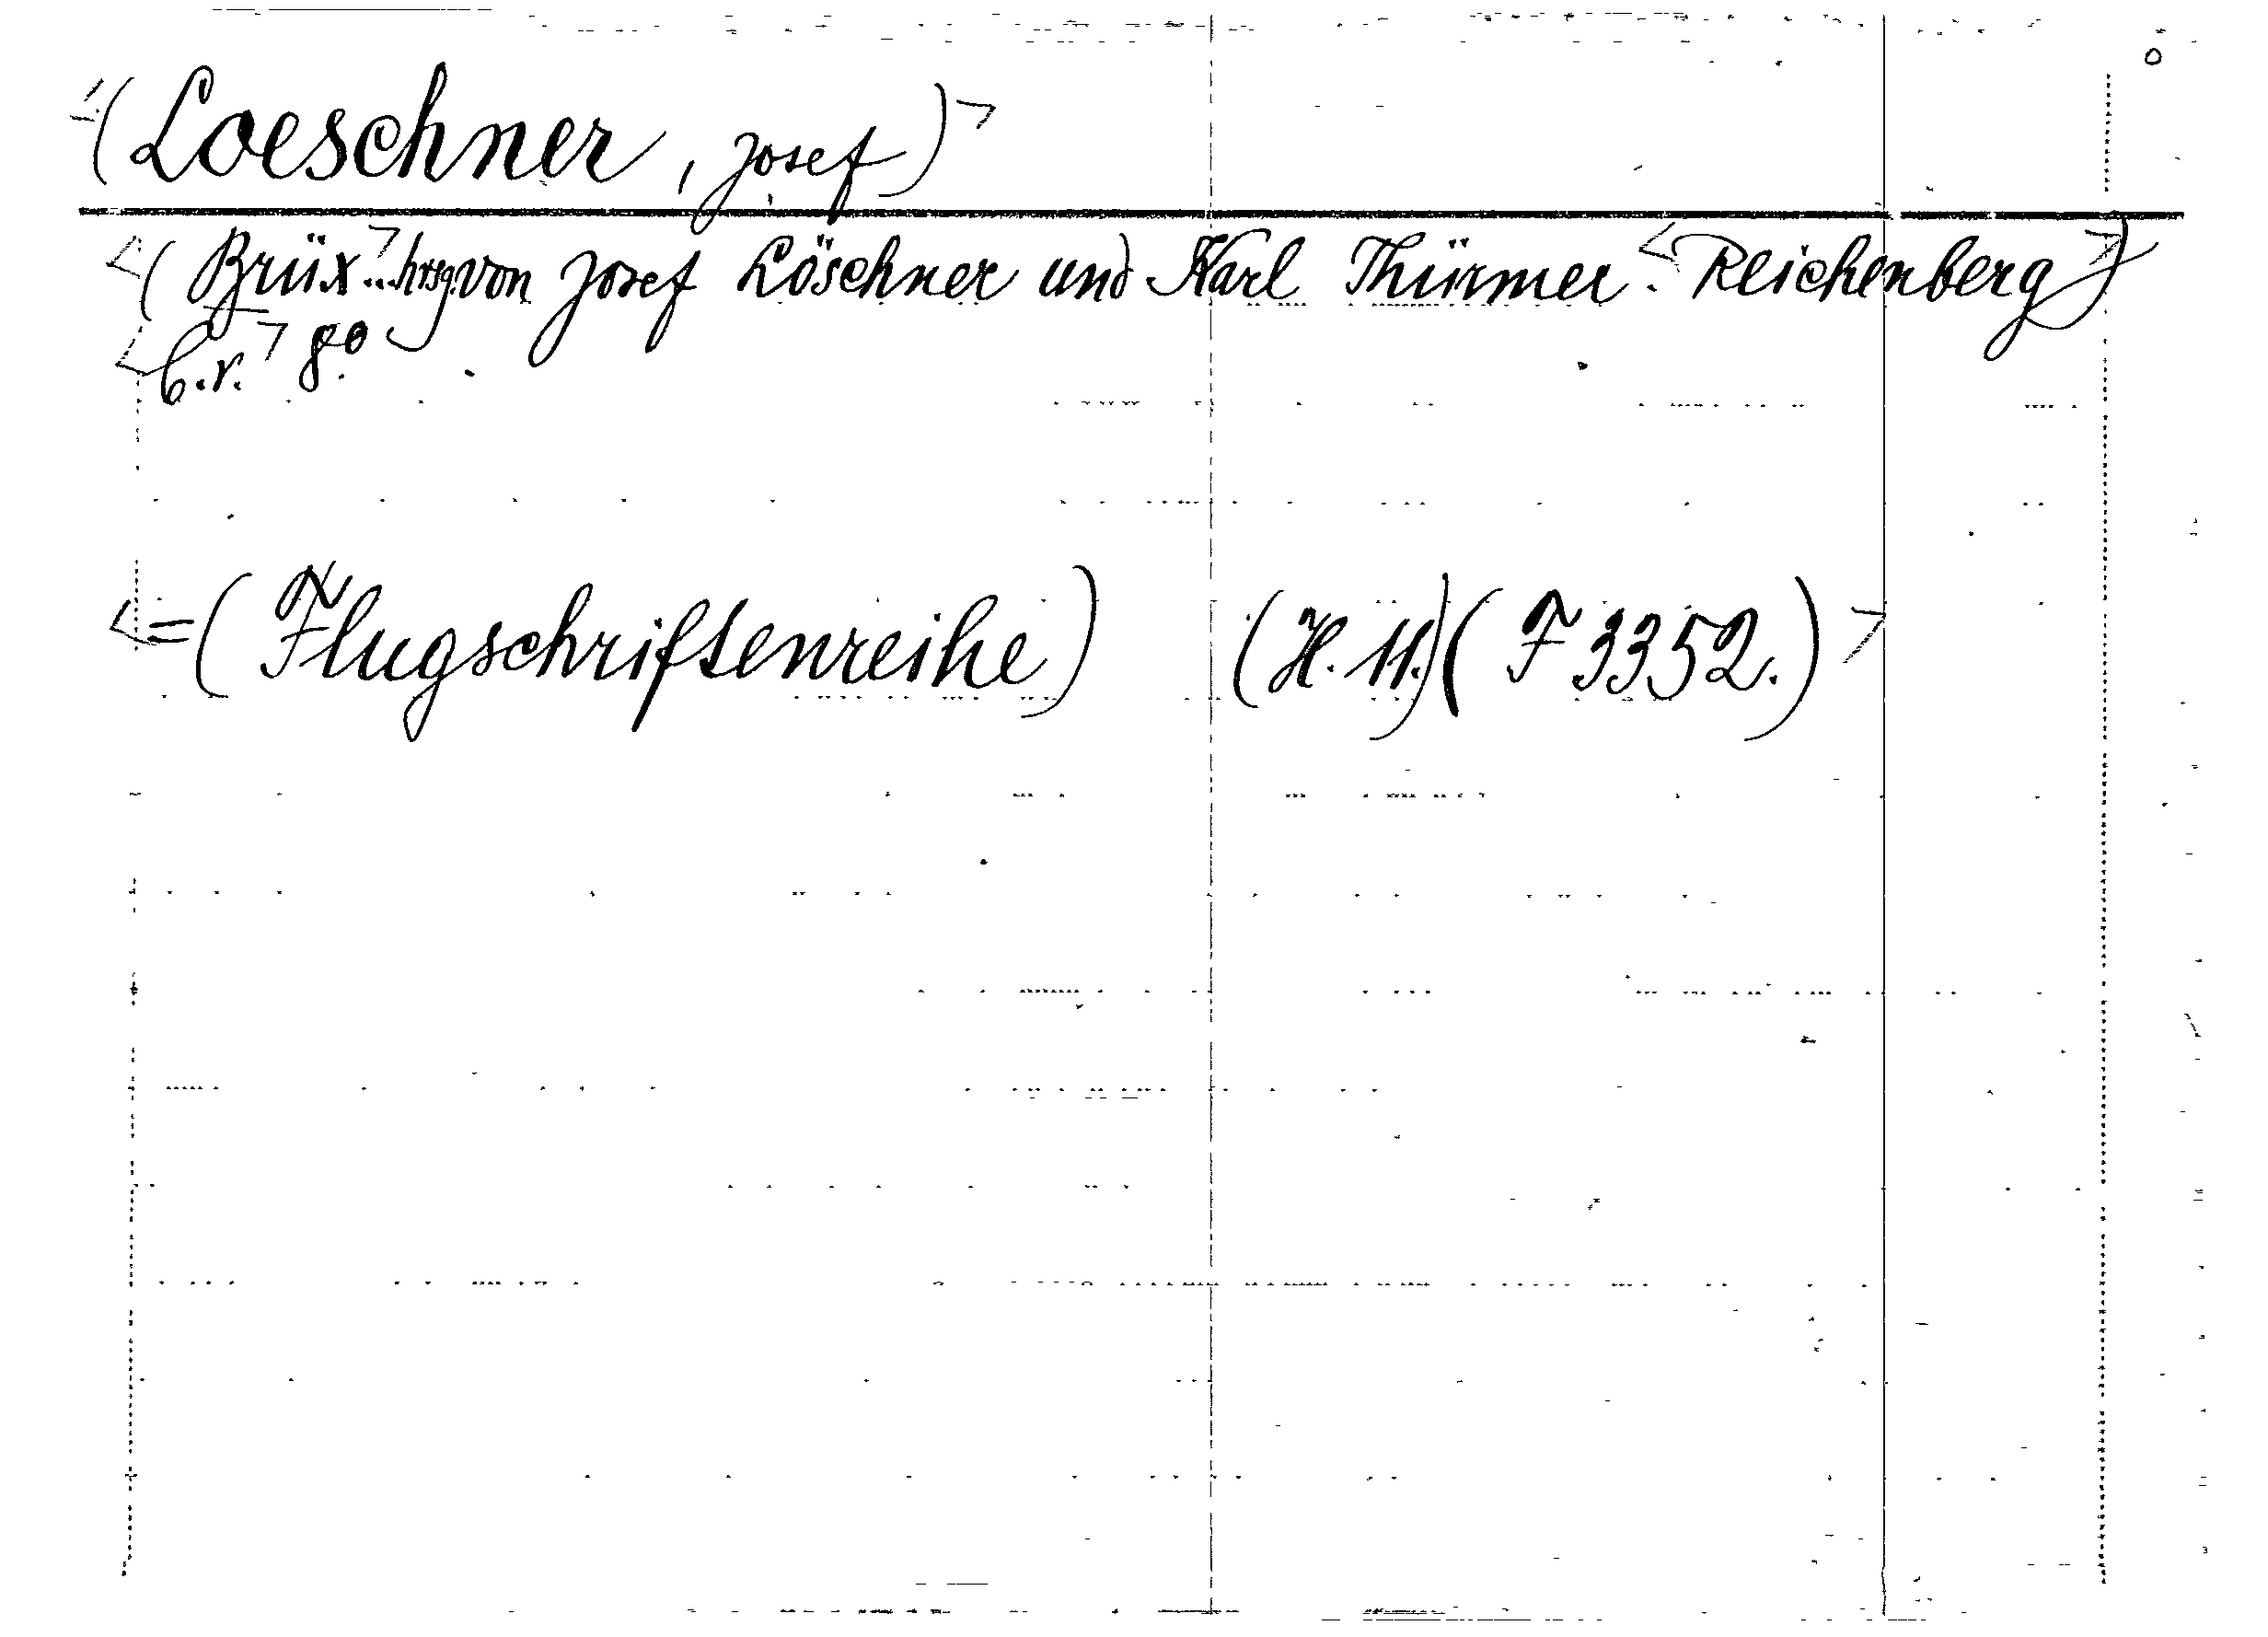 <(Loeschner, Josef)>
<(Brüx> ... hrsg. von Josef Löschner und Karl Thürmer. <Reichenberg)>
<b.r.> 8°
<=(Flugschriftenreihe) (H. 11.)(F 3352.)>